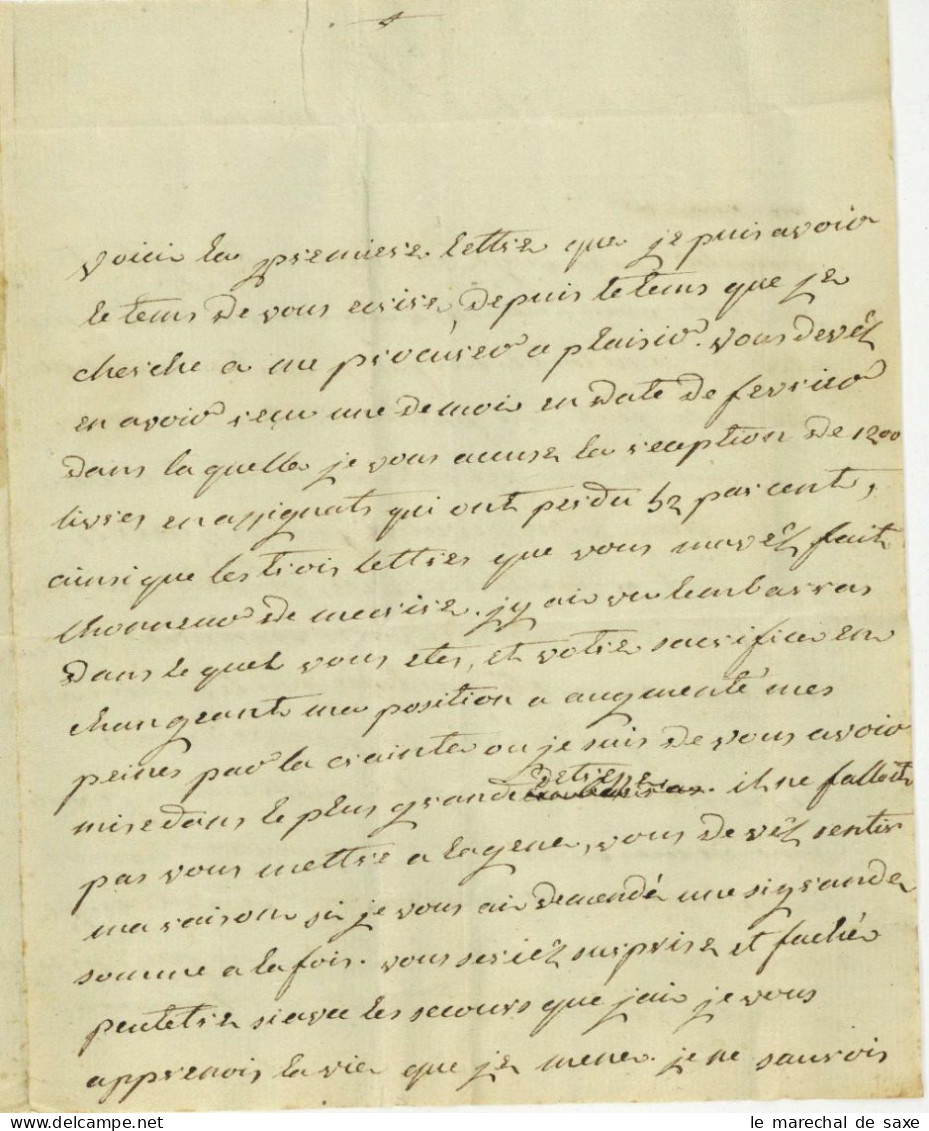 voici la premiere lettre que je puis avoir
le tems de vous ecrire, depuis le tems que je
cherche a me procurer a plaisir. vous devéz
en avoir recu une de moi en date de fevrier
dans laquelle je vous accuse la reception de 1200
livres en assignats qui ont perdu 52 par cent,
ainsi que les trois lettres que vous mavéz fait
lhonneur de mecrire. jy ai vu lembarras
dans lequel vous etes, et votre sacrifice en
changeant ma position a augmenté mes
peines par la crainte ou je suis de vous avoir
detresse
mise dans le plus grand embarras. il ne falloit
pas vous mettre a lagene, vous devéz sentir
ma raison si je vous ai demendé une si grande
somme a la fois. vous seriéz surprise et fachée
peutetre si avec les secours que jai je vous
apprenois la vie que je mene. je ne saurois
le marechal de saxe